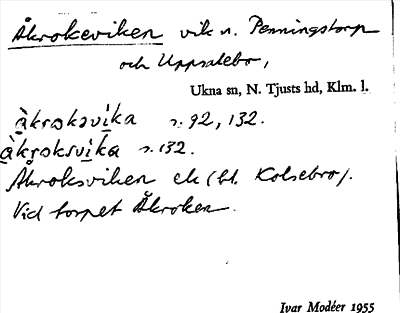 Åkrokeviken vik n. Penningstorp
och Uppsalebo,
Ukna sn, N. Tjusts hd, Klm. l.
àkrokəvi̱ka s. 92, 132.
àkroksvi̱ka s. 132.
Åkroksviken ek (bl. Kolsebro).
Vid torpet Åkroken.
Ivar Modéer 1955